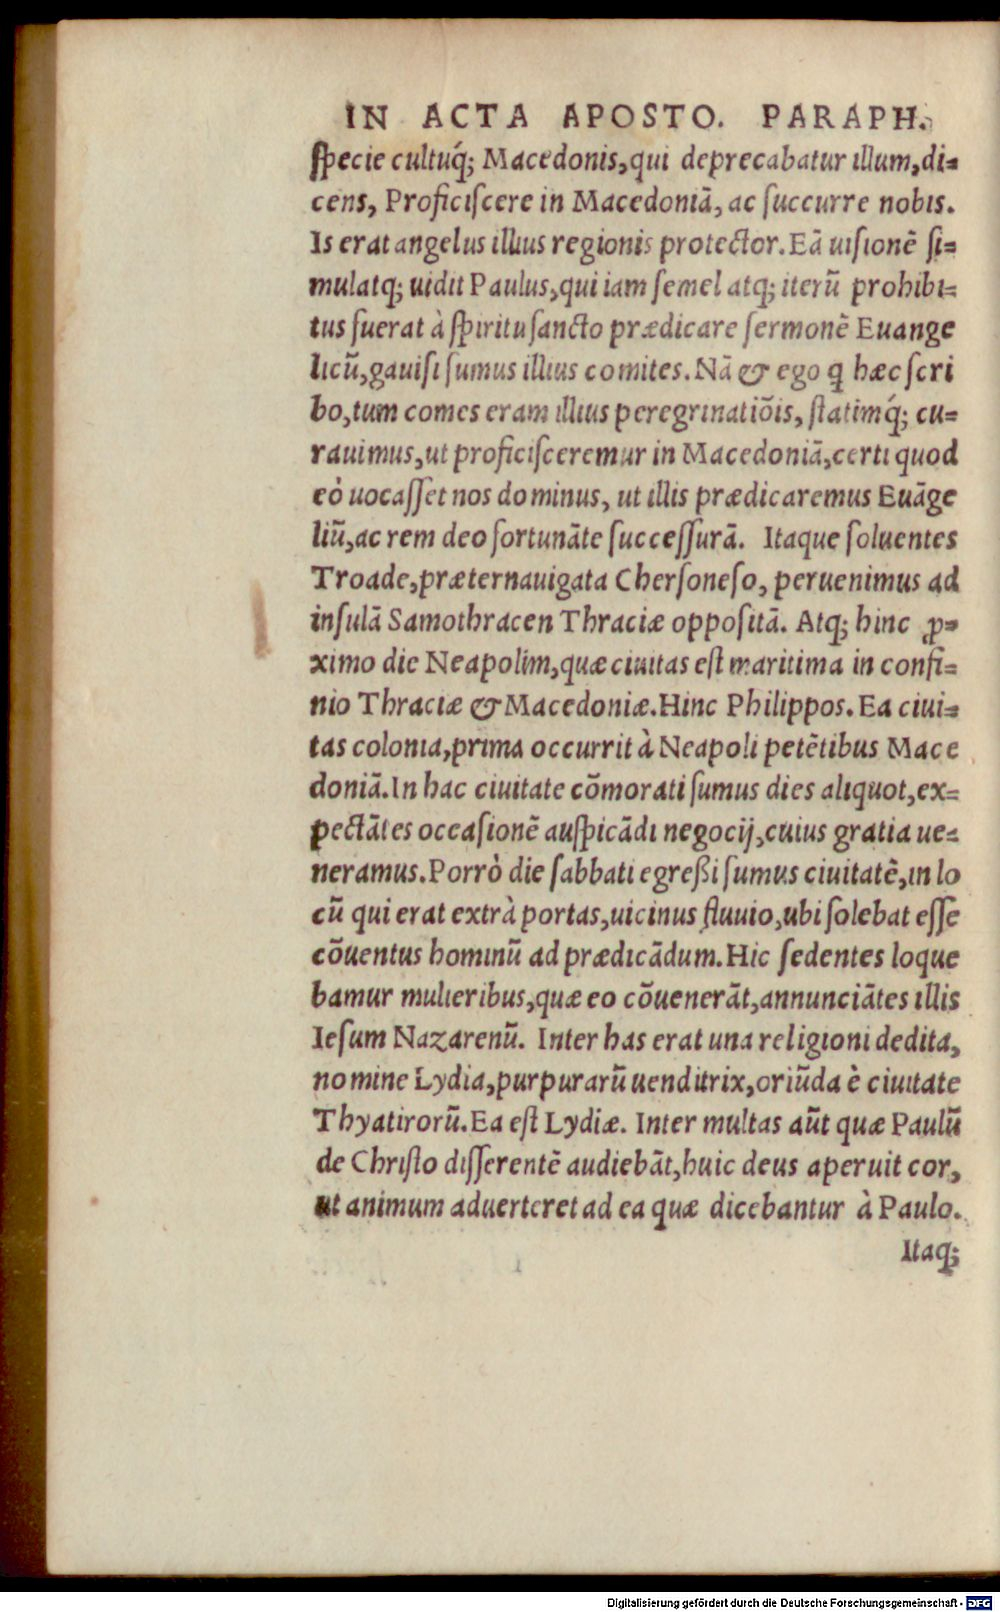 IN ACTA APOSTO. PARAPH.
ſpecie cultuq́; Macedonis, qui deprecabatur illum, di=
cens, Proficiſcere in Macedoniā, ac ſuccurre nobis.
Is erat angelus illius regionis protector. Eā uiſionē ſi=
mulatq; uidit Paulus, qui iam ſemel atq; iterū prohibi=
tus fuerat à ſpiritu ſancto prædicare ſermonē Euange
licū, gauiſi ſumus illius comites. Nā & ego q hæc ſcri
bo, tum comes eram illius peregrinatiōis, ſtatimq́; cu=
rauimus, ut proficiſceremur in Macedoniā, certi quod
eò uocaſſet nos dominus, ut illis prædicaremus Euāge
liū, ac rem deo fortunāte ſucceſſurā. Itaque ſoluentes
Troade, præternauigata Cherſoneſo, peruenimus ad
inſulā Samothracen Thraciæ oppoſitā. Atq; hinc ꝓ=
ximo die Neapolim, quæ ciuitas eſt maritima in confi=
nio Thraciæ & Macedoniæ. Hinc Philippos. Ea ciui=
tas colonia, prima occurrit à Neapoli petētibus Mace
doniā. In hac ciuitate cōmorati ſumus dies aliquot, ex=
pectātes occaſionē auſpicādi negocij, cuius gratia ue=
neramus. Porrò die ſabbati egreßi ſumus ciuitatē, in lo
cū qui erat extrà portas, uicinus fluuio, ubi ſolebat eſſe
cōuentus hominū ad prædicādum. Hic ſedentes loque
bamur mulieribus, quæ eo cōuenerāt, annunciātes illis
Ieſum Nazarenū. Inter has erat una religioni dedita,
nomine Lydia, purpurarū uenditrix, oriūda è ciuitate
Thyatirorū. Ea eſt Lydiæ. Inter multas aūt quæ Paulū
de Chriſto diſſerentē audiebāt, huic deus aperuit cor,
ut animum aduerteret ad ea quæ dicebantur à Paulo.
Itaq;
Digitalisierung gefördert durch die Deutsche Forschungsgemeinschaft - DFG